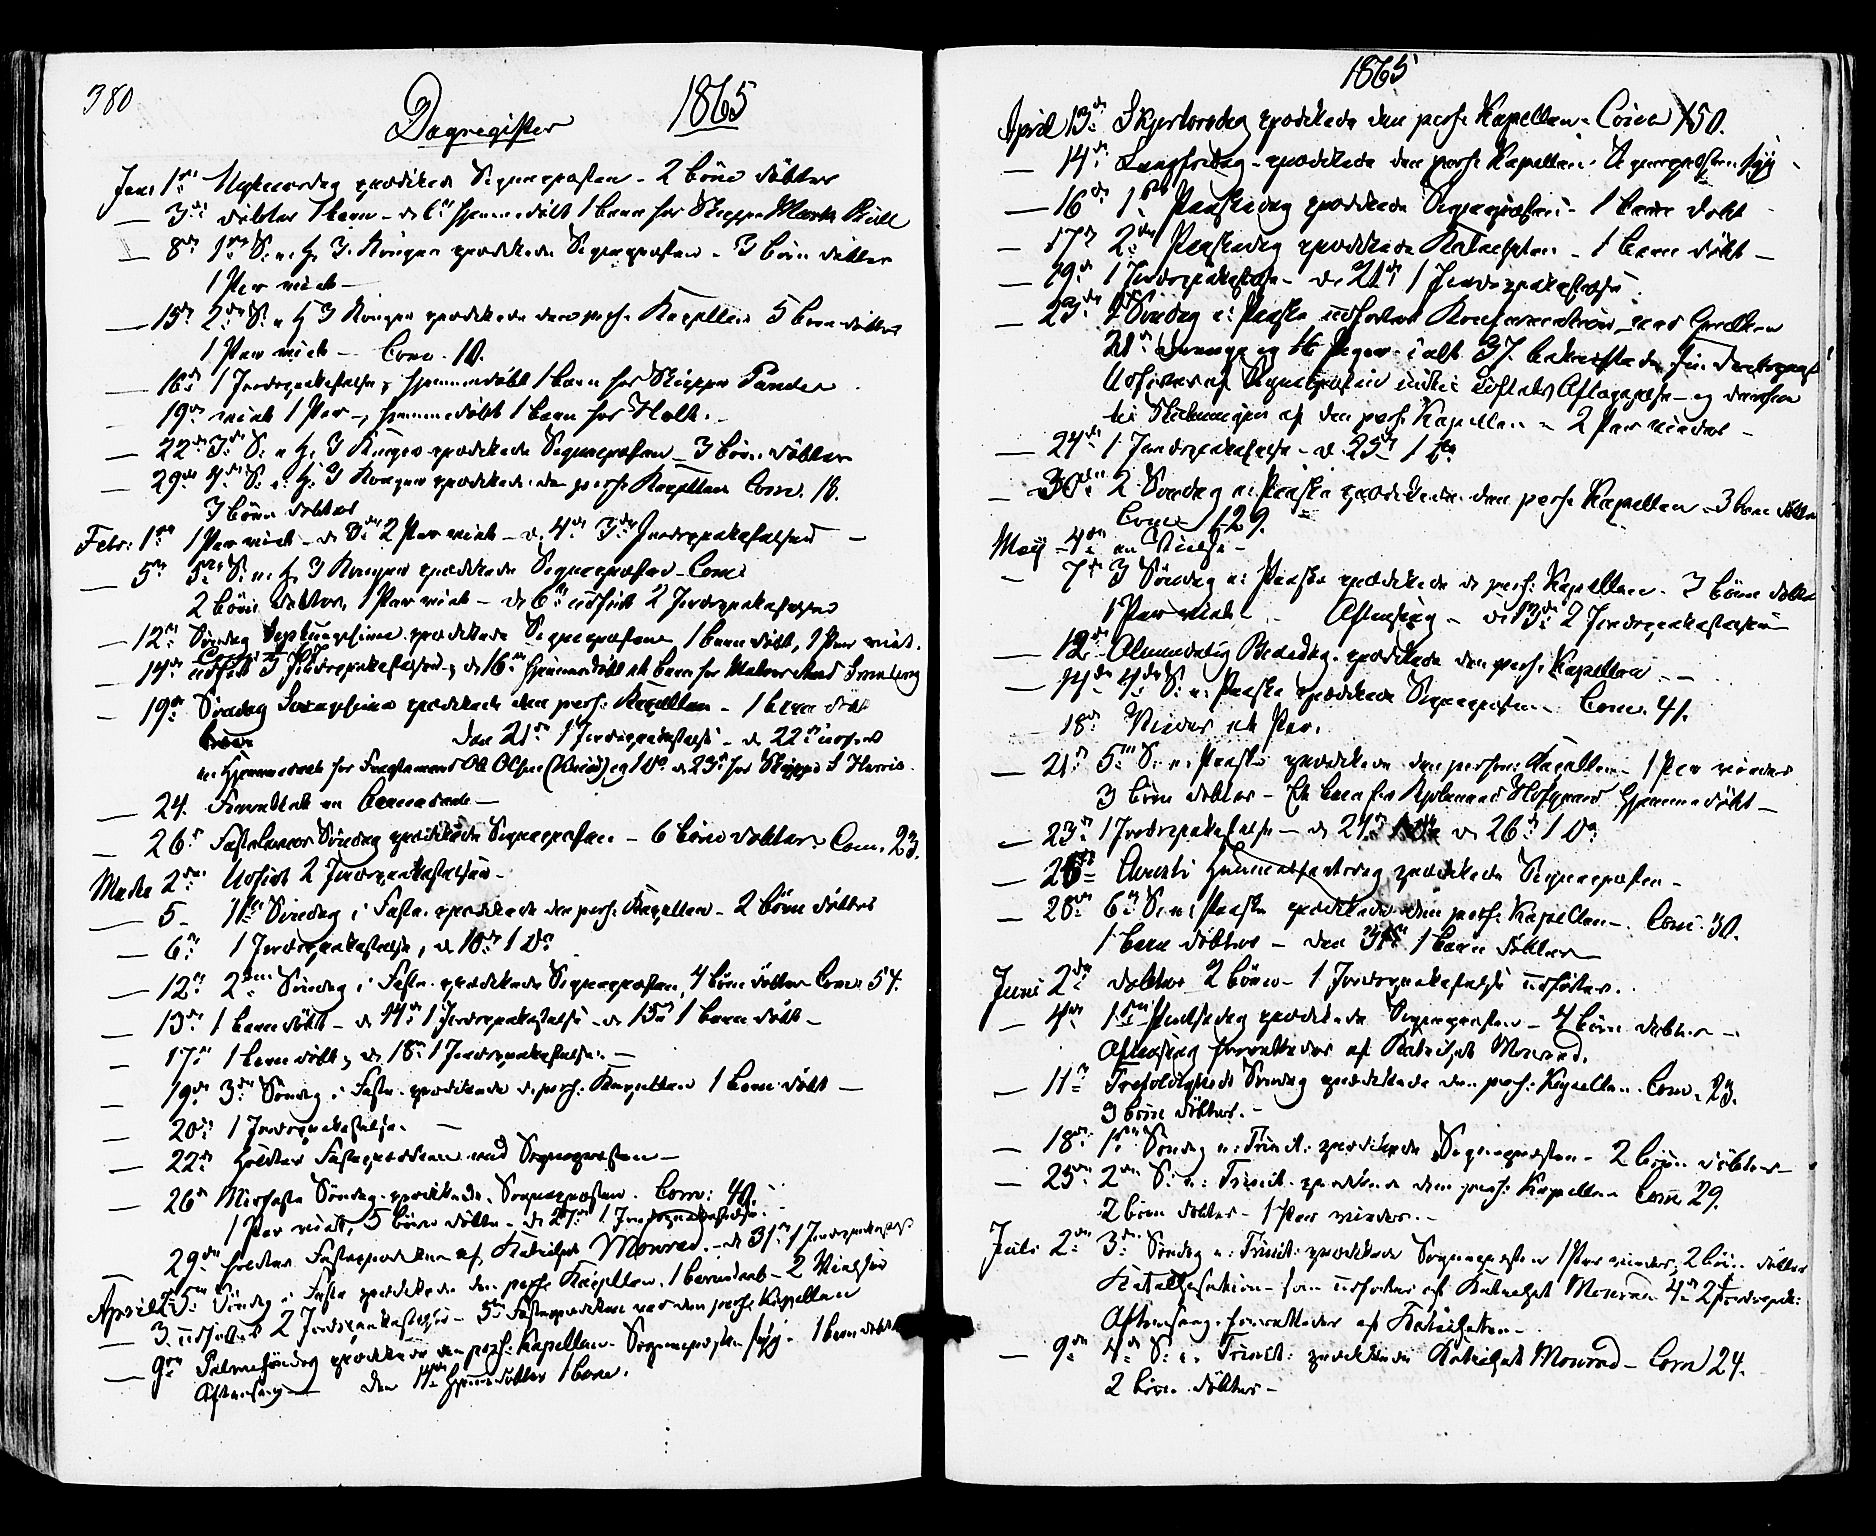 380
Dagregister 1865
Jan: 1ste Nytaarsdag prædikede Sognepræsten - 2 børn døbtes
— 3die døbtes 1 barn - d. 6te hjemmedøbt 1 barn hos Skipper
— 8de 1ste S. e. H. 3 Konger prædikede Sognepræsten - 3 børn døbtes
1 Par viet —
— 15de 2den S. e. H. 3 Konger prædikede den pers. Kapellan 5 børn døbtes
1 Par viet — Com. 10.
— 16de 1 Jordpaakastelse, hjemmedøbt 1 barn hos Skipper
19de viet 1 Par -, hjemmedøbt 1 barn hos Holt.
— 22de 3die S. e. H. 3 Konger prædikede Sognepræsten - 3 børn døbtes
— 29de 4de S. e. H. 3 Konger prædikede den pers. Kapellan Com. 18.
3 børn døbtes
Febr: 1ste 1 Par viet - d. 3die 2 Par viet - d. 4de 3 Jordpaakastelser —
— 5te 5te S. e. H. 3 Konger prædikede Sognepræsten - Com:
2 børn døbtes, 1 Par viet - d. 6te udført 2 Jordpaakastelser
— 12te Søndag Septuagesima prædikede Sognepræsten 1 barn døbt, 1 Par viet.
— 14de udført 3 Jordpaakastelser, d. 16de hjemmedøbt et barn for
— 19de Søndag Sexagesima prædikede den pers. Kapellan - 1 barn døbt
den 21de 1 Jordpaakastelse - d. 22de
en hjemmedaab for Ole Olsen og 1 do d. 23de hos Skipper
— 24. Forrettet en barnedaab —
— 26de Fastelavns Søndag prædikede Sognepræsten - 6 børn døbtes Com. 23.
Marts 2den Udført 2 Jordpaakastelser -
— 5 - 1ste Søndag i Faste prædikede den pers. Kapellan - 2 børn døbtes
— 6te 1 Jordpaakastelse, d. 10de 1 do
— 12te 2den Søndag i Faste prædikede Sognepræsten, 4 børn døbtes Com: 54.
— 13de 1 barn døbt - d. 14de 1 Jordpaakastelse - d. 15de 1 barn døbt —
— 17de 1 barn døbt, d. 18de 1 Jordpaakastelse. —
— 19de 3die Søndag i Faste prædikede d. pers. Kapellan 1 barn døbt —
— 20de 1 Jordpaakastelse. —
— 22de holdtes Fasteprædiken ved Sognepræsten —
— 26de Midfaste Søndag prædikede Sognepræsten. Com: 40.
1 Par viet, 5 børn døbte - d. 27de 1 Jordpaakastelse.
— 29de holdtes Fasteprædiken af Kateket Monrad. - d. 31te 1 Jordpaakastelse
April 2den 5te Søndag i Faste prædikede den pers. Kapellan, 1 barnedaab - 2 Vielser
— 3. udførtes 2 Jordpaakastelser - 5te Fasteprædiken ved den pers. Kapellan
— 9de Palmesøndag prædikede den pers. Kapellan - Sognepræsten syg - 1 barn døbt
Aftensang — den 11te hjemmedøbtes 1 barn.
1865
April 13de Skjertorsdag prædikede den pers. Kapellan - Com 150.
— 14de Langfredag - prædikede den pers. Kapellan. Sognepræsten syg -
— 16de 1ste Paaskedag prædikede Sognepræsten - 1 barn døbt -
— 17de 2den Paaskedag prædikede Kateketen - 1 barn døbt —
— 19de 1 Jordpaakastelse - d. 21de 1 Jordpaakastelse
— 23de 1ste Søndag e: Paaske udførtes Konfirmation
21 Drenge og 16 Piger - ialt 37.
af Sognepræsten og
af den pers. Kapellan - 2 Par viedes -
— 24de 1 Jordpaakastelse - d. 25de 1 do
— 30te 2 Søndag e: Paaske prædikede den pers. Kapellan - 3 børn døbtes
Com 129.
Maj - 4de en Vielse -
— 7de 3 Søndag e: Paaske prædikede d. pers. Kapellan - 3 børn døbtes
1 Par viet - Aftensang - d. 13de 2 Jordpaakastelser
— 12 Almindelig Bededag - prædikede den pers. Kapellan —
— 14de 4de S. e: Paaske prædikede Sognepræsten - Com. 41.
— 18de Viedes et Par.
— 21de 5te S. e. Paaske prædikede den pers. Kapellan - 1 Par viedes
3 børn døbtes - Et barn hjemmedøbt —
— 23de 1 Jordpaakastelse - d. 26de 1 do
— 25de Christi Himmelfartsdag prædikede Sognepræsten -
— 28de 6te S. e: Paaske prædikede den pers. Kapellan - Com: 30.
1 barn døbtes - den 31te 1 barn døbtes
Juni 2den døbtes 2 børn - 1 Jordpaakastelse udførtes.
— 4de 1ste Pintsedag prædikede Sognepræsten - 4 børn døbtes —
Aftensang forrettedes af Kateket Monrad.
— 11te Trefoldigheds Søndag prædikede den pers. Kapellan - Com. 23.
3 børn døbtes. -
— 18de 1ste Søndag e: Trinit: prædikede Sognepræsten - 2 børn døbtes —
— 25de 2den S. e: Trinit. prædikede den pers. Kapellan Com 29.
2 børn døbtes - 1 Par viedes. -
Juli 2den 3die Søndag e: Trinit: prædikede Sognepræsten 1 Par viedes, 2 børn døbtes
Katekisation - som udførtes af Kateket Monrad 4de 2 Jordpaak:
Aftensang forrettedes af Kateketen -
— 9de 4de S. e. Trinit: prædikede Kateket Monrad - Com 24.
2 børn døbtes -